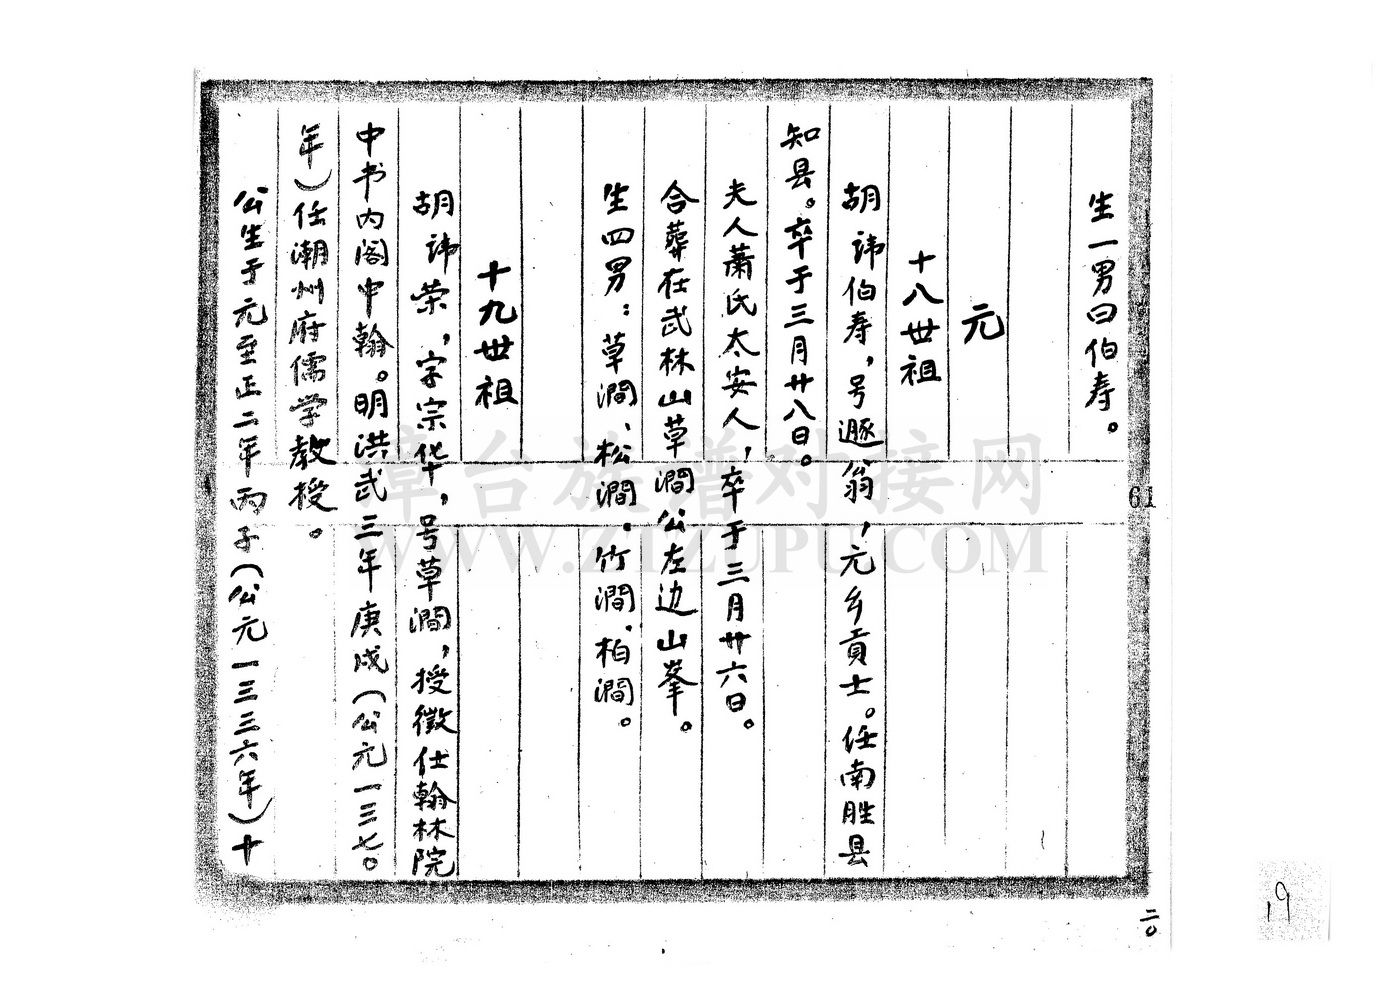 生一男曰伯寿。
元
十八世祖
胡讳伯寿，号遯翁，元乡贡士。任南胜县
知县。卒于三月廿八日。
夫人萧氏太安人，卒于三月廿六日。
合葬在武林山草涧公左边山峯。
生四男：草涧、松涧、竹涧、柏涧。
十九世祖
胡讳荣，字宗华，号草涧，授徵仕翰林院
中书内阁中翰。明洪武三年庚戌（公元一三七〇
年）任潮州府儒学教授。
公生于元至正二年丙子（公元一三三六年）十
61
二〇
19
漳台族谱对接网
WWW.ZTZUPU.COM